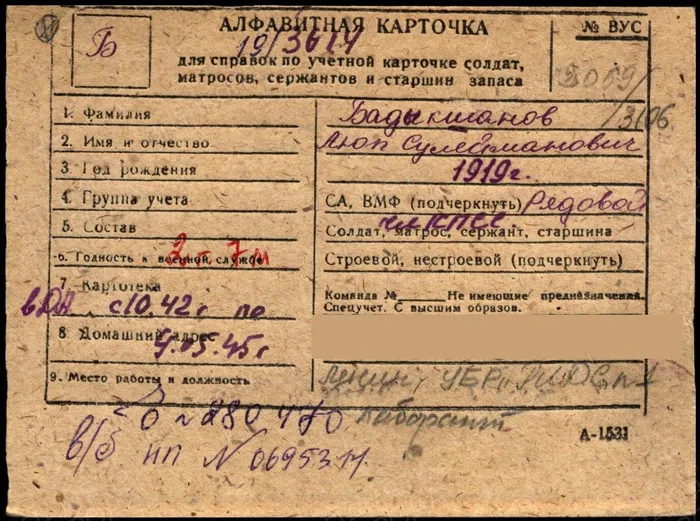 АЛФАВИТНАЯ КАРТОЧКА
№ ВУС
Б
19/3614
для справок по учетной карточке солдат,
матросов, сержантов и старшин запаса
3106
1. Фамилия
Бадыкшанов
2. Имя и отчество
Аюп Сулейманович
3. Год рождения
1919г.
4. Группа учета
СА, ВМФ (подчеркнуть) Рядовой
чл КПСС.
5. Состав
Солдат, матрос, сержант, старшина
6. Годность к военной службе
2-7м
Строевой, нестроевой (подчеркнуть)
7. Картотека
Команда № Не имеющие предназначен.
Спецучет. С высшим образов.
в ДА. с 10.42 г по
8. Домашний адрес
9.05.45 г
9. Место работы и должность
УБР,
№ 280470
в/б НП № 0695311.
А-1531